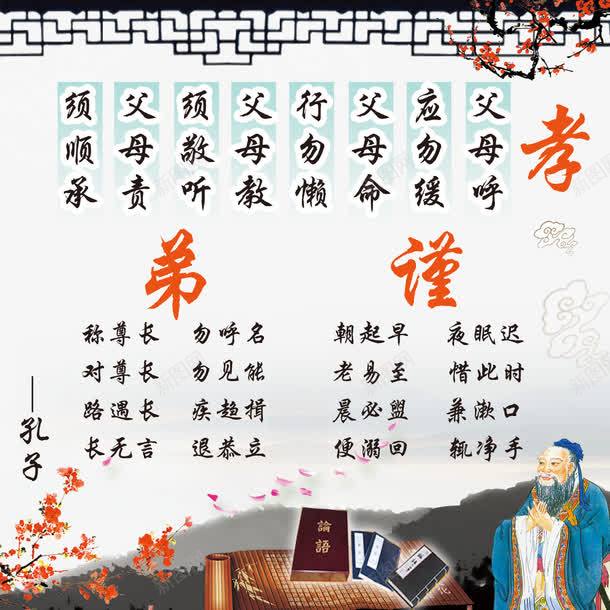 孝
父母呼
应勿缓
父母命
行勿懒
父母教
须敬听
父母责
须顺承
谨
朝起早 夜眠迟
老易至 惜此时
晨必盥 兼漱口
便溺回 辄净手
弟
称尊长 勿呼名
对尊长 勿见能
路遇长 疾趋揖
长无言 退恭立
—孔子
論語